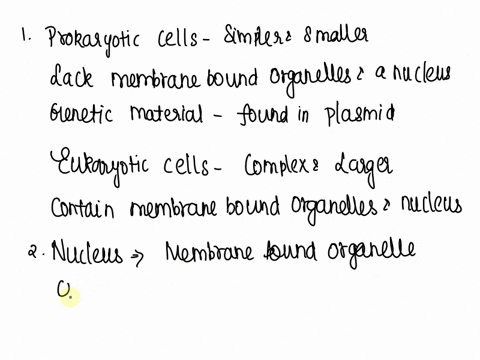 1. Prokaryotic cells - Simpler & smaller
Lack membrane bound organelles & a nucleus
Genetic material - found in plasmid
Eukaryotic cells - Complex & Larger
Contain membrane bound organelles & nucleus
2. Nucleus => Membrane bound organelle